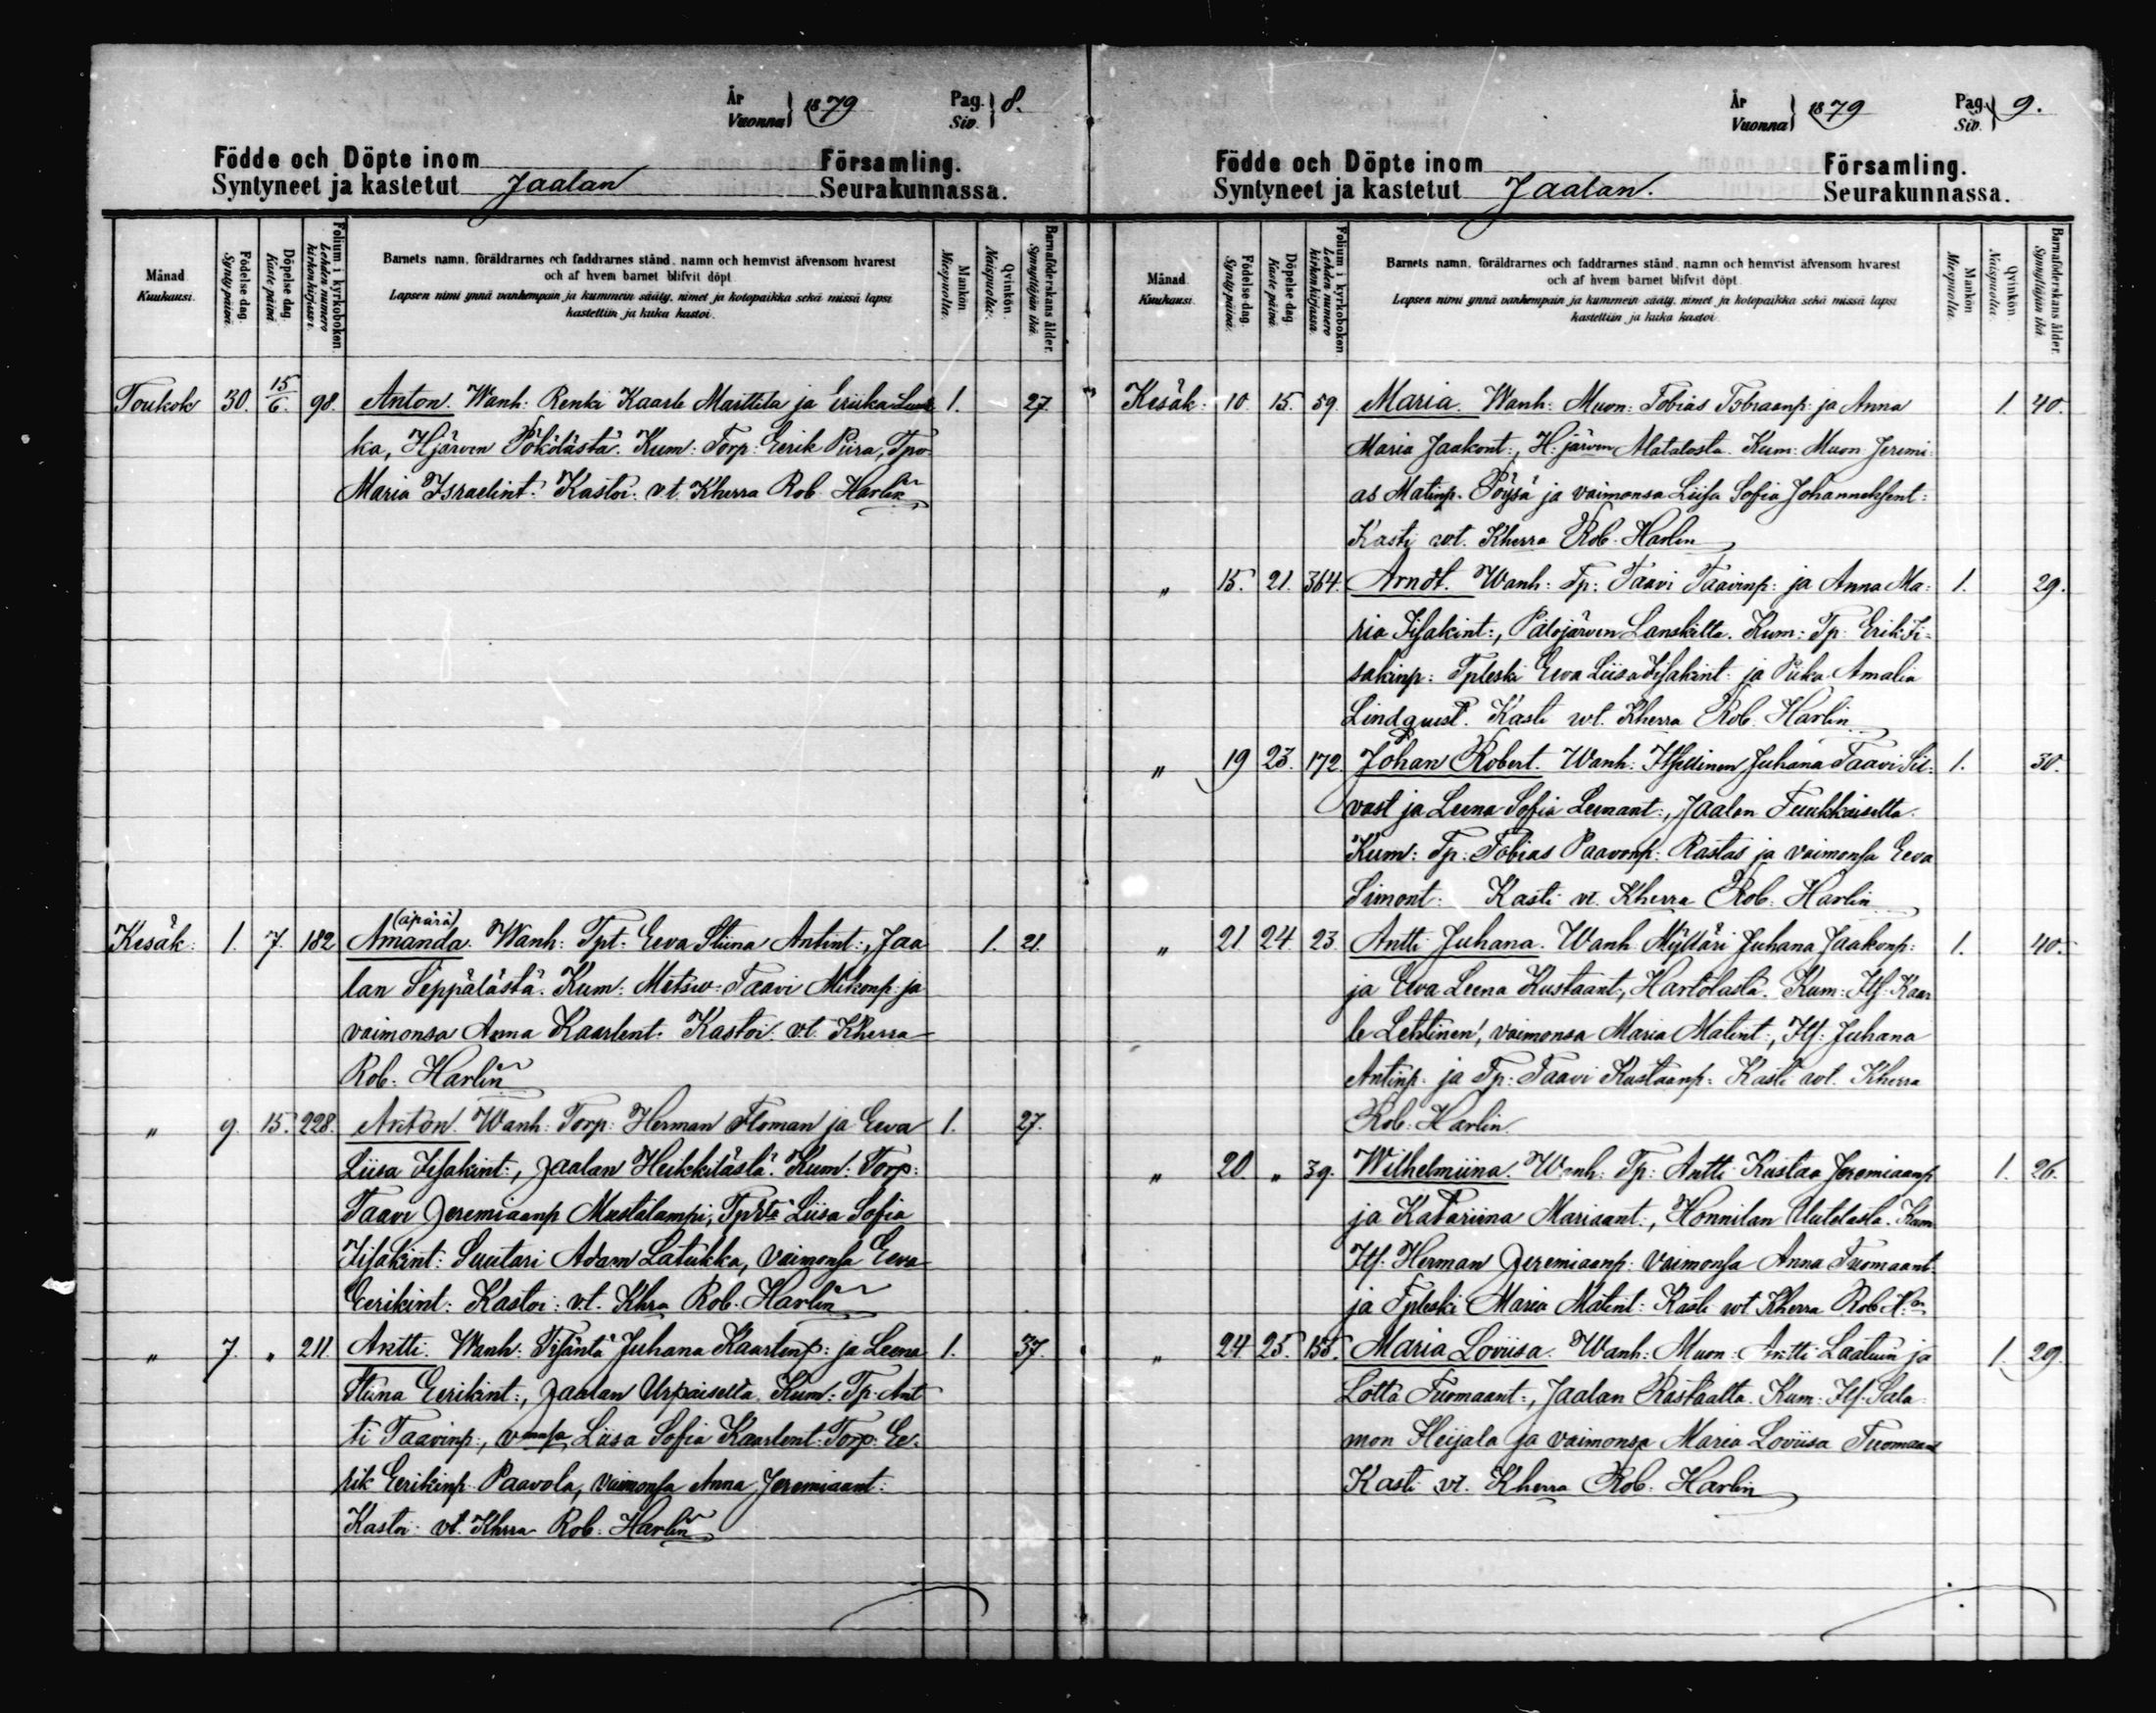 År
Vuonna } 1879
Pag.
Siv. } 8.
Födde och Döpte inom Församling.
Syntyneet ja kastetut Jaalan Seurakunnassa.
Månad
Kuukausi.
Födelse dag.
Synty päivä.
Döpelse dag.
Kaste päivä.
Folium i kyrkoboken.
Lehden numero kirkonkirjassa.
Barnets namn, föräldrarnes och faddrarnes stånd, namn och hemvist äfvensom hvarest
och af hvem barnet blifvit döpt.
Lapsen nimi ynnä vanhempain ja kummein sääty, nimet ja kotopaikka sekä missä lapsi
kastettiin ja kuka kastoi.
Mankön.
Miespuolia.
Qvinkön.
Naispuolia.
Barnaföderskans ålder.
Synnyttäjän ikä.
Toukok 30. 15/6. 98. Anton. Wanh: Renki Kaarle Marttila ja Eriika Luuk 1. 27.
ka, Hjärven Pökölästä. Kum: Torp: Eerik Piira, Tpv
Maria Israelint: Kastoi: v.t. Kherra Rob. Harlin
(äpärä)
Kesäk: 1. 7. 182 Amanda. Wanh: Tpt: Eeva Stiina Antint:, Jaa 1. 21.
lan Seppälästä. Kum: Metsw: Taavi Mikonp: ja
vaimonsa Anna Kaarlent: Kastoi: v.t. Kherra
Rob: Harlin
" 9. 15. 228. Anton. Wanh: Torp: Herman Floman ja Eeva 1. 27.
Liisa Iisakint:, Jaalan Heikkilästä. Kum: Torp:
Taavi Jeremiaanp Mustalampi, Liisa Sofia
Iisakint: Suutari Adam Latukka, vaimonsa Eeva
Eerikint: Kastoi: v.t. Khra Rob. Harlin
" 7. " 211. Antti. Wanh: Isäntä Juhana Kaarlenp: ja Leena 1. 37.
Stiina Eerikint:, Jaalan Urpaiselta. Kum: Tp: Ant
ti Taavinp:, vmonsa Liisa Sofia Kaarlent: Torp: Ee.
rik Eerikinp. Paavola, vaimonsa Anna Jeremiaant:
Kastoi: vt. Khrra Rob: Harlin
År
Vuonna } 1879
Pag.
Siv. } 9.
Födde och Döpte inom Församling.
Syntyneet ja kastetut Jaalan. Seurakunnassa.
Månad
Kuukausi.
Födelse dag.
Synty päivä.
Döpelse dag.
Kaste päivä.
Folium i kyrkoboken
Lehden numero kirkonkirjassa.
Barnets namn, föräldrarnes och faddrarnes stånd, namn och hemvist äfvensom hvarest
och af hvem barnet blifvit döpt.
Lapsen nimi ynnä vanhempain ja kummein sääty, nimet ja kotopaikka sekä missä lapsi
kastettiin ja kuka kastoi.
Mankön
Miespuolia.
Qvinkön.
Naispuolia.
Barnaföderskans ålder.
Synnyttäjän ikä.
Kesäk: 10. 15. 59. Maria. Wanh: Muon: Tobias Tobiaanp: ja Anna 1. 40.
Maria Jaakont:, H:järven Alatalosta. Kum: Muon: Jeremi
as Matinp. Pöysä ja vaimonsa Liisa Sofia Johanneksent:
Kasti v.t. Kherra Rob. Harlin
" 15. 21. 364. Arndt. Wanh: Tp: Taavi Taavinp: ja Anna Ma: 1. 29.
ria Iisakint:, Palojärven Lanskilta. Kum: Tp: Erik Ii-
sakinp: Tpleski Eeva Liisa Iisakint: ja Piika Amalia
Lindquist. Kasti vt. Kherra Rob. Harlin
" 19 23. 172. Johan Robert. Wanh: Itsellinen Juhana Taavi Sil- 1. 30.
vast ja Leena Sofia Leenant:, Jaalan Tuukkaiselta.
Kum: Tp: Tobias Paavonp: Rastas ja vaimonsa Eeva
Simont: Kasti vt. Kherra Rob: Harlin
" 21. 24. 23. Antti Juhana. Wanh: Mylläri Juhana Jaakonp: 1. 40.
ja Eeva Leena Kustaant:, Hartolasta. Kum: Its: Kaar
le Lehtinen, vaimonsa Maria Matint:, Its: Juhana
Antinp: ja Tp: Taavi Kustaanp: Kasti vt. Kherra
Rob: Harlin.
" 20. " 39. Wilhelmiina. Wanh: Tp: Antti Kustaa Jeremiaanp 1. 26.
ja Katariina Mariaant:, Honnilan Uutolasta. Kum
Its: Herman Jeremiaanp: vaimonsa Anna Tuomaant:
ja Tpleski Maria Matint: Kasti vt Kherra Rob H:in
" 24 25. 155. Maria Loviisa. Wanh: Muon: Antti Laatuin ja 1. 29.
Lotta Tuomaant:, Jaalan Rastaalta. Kum: Its: Sala
mon Heijala ja vaimonsa Maria Loviisa Tuomaant
Kasti vt. Kherra Rob: Harlin